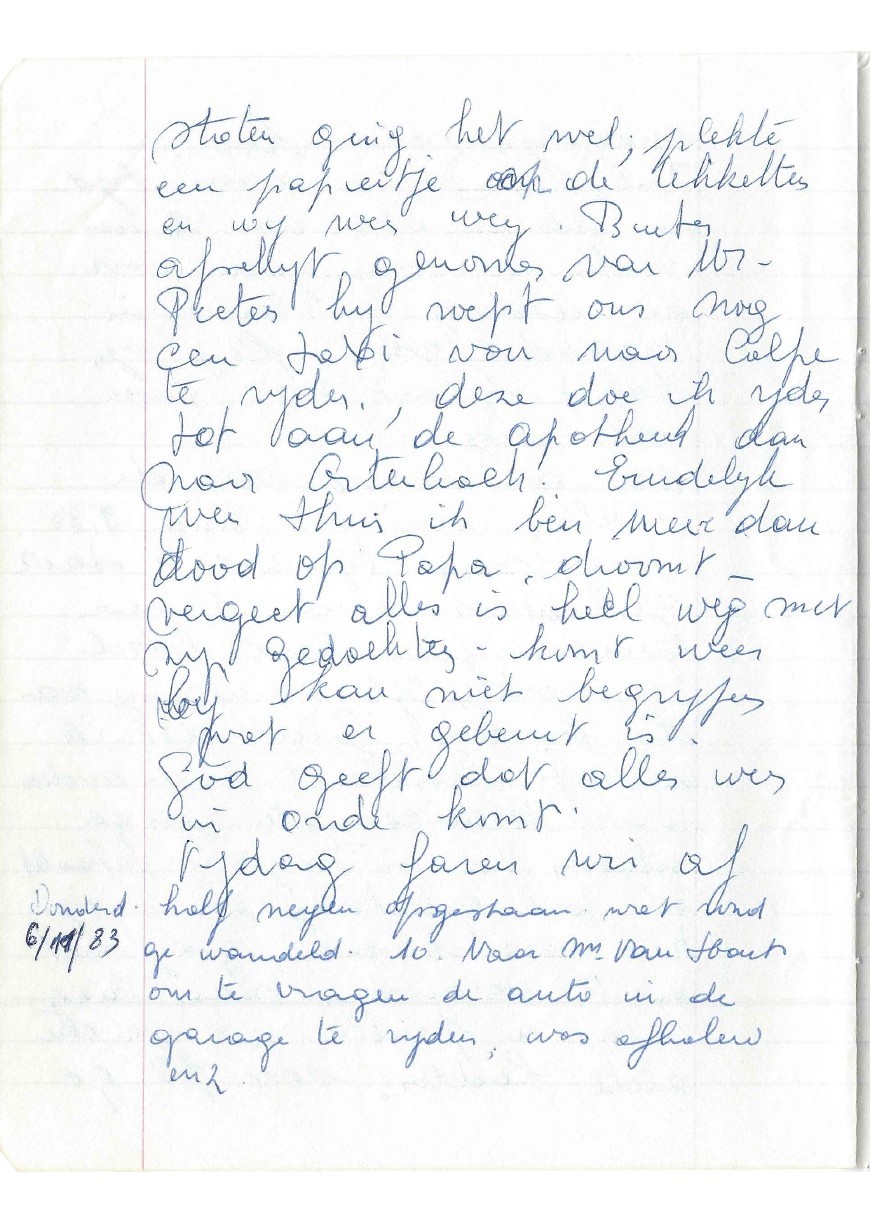 staten ging het wel, plekte
een papiertje op de tikketten
en wy wes weg. Buiten
afscheyt genomen van Mr-
Peeters hy roept ons nog
een taxi von naar Calpe
te ryden, deze doe ik ryden
tot aan de apotheek dan
naar Osterbach. Eindelyk
wee thuis ik ben meer dan
dood op Papa. droomt -
vergeet alles is heel weg met
zyn gedachten - komt weer
by kan niet begrypen
wat er gebeurt is.
God geeft dat alles wes
in orde komt.
faren wei af
Donderd. half negen opgestaan wat rond
6/11/83 gewandeld. 10 Naar Mr. Van Hout
om te vragen de auto in de
garage te ryden, was afhalen
enz